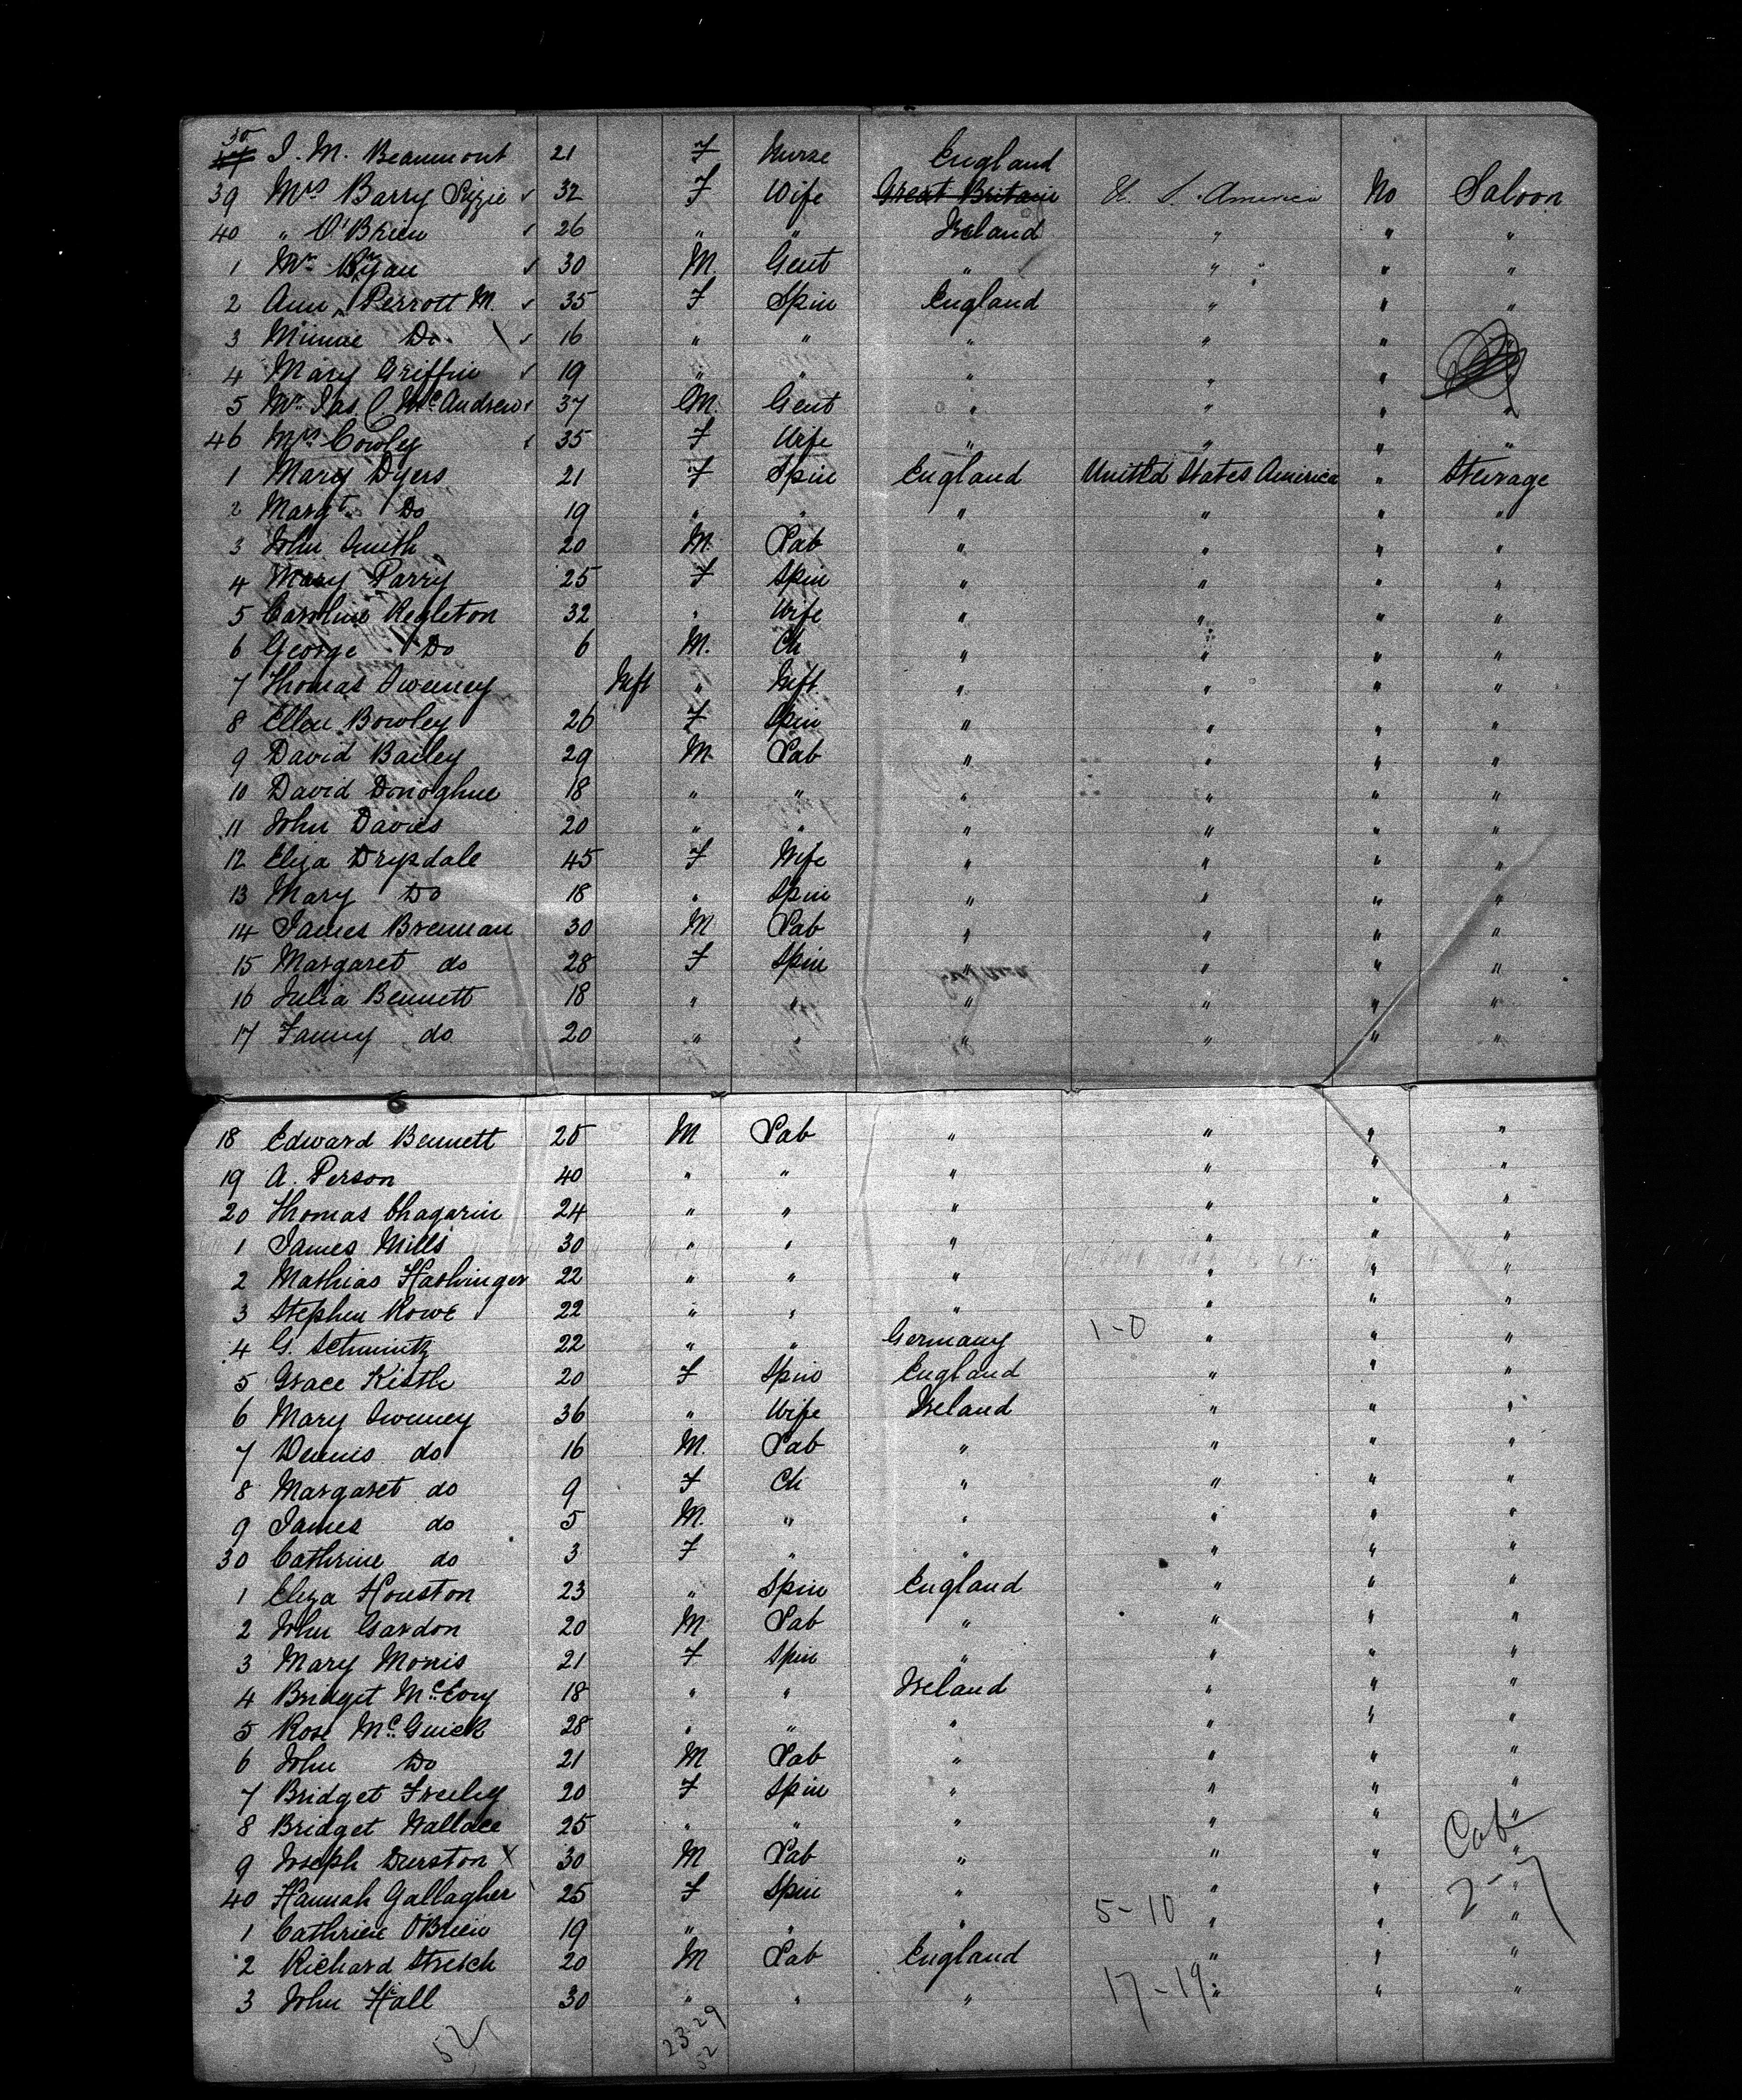 30 I. M. Beaumont 21 F Nurse England
39 Mrs Barry Lizzie 32 F Wife Great Britain U. S. America No Saloon
40 " O'Brien 26 " " Ireland " " "
1 Mr Ryan 30 M. Gent " " " "
2 Ann Perrott M. 35 F Spin England " " "
3 Minnie Do. 16 " " " " "
4 Mary Griffin 19 " " " " "
5 Mr Jas McAndrew 37 M. Gent " " " "
46 Mrs Cowley 35 F Wife " " " "
1 Mary Dyers 21 F Spin England United States America " Steerage
2 Margt Do 19 " " " " " "
3 John Smith 20 M. Lab " " " "
4 Mary Parry 25 F Spin " " " "
5 Caroline Regleton 32 " Wife " " " "
6 George Do 6 M. Ch " " " "
7 Thomas Sweeney Inft " Inft " " " "
8 Ellen Bowley 26 F Spin " " " "
9 David Bailey 29 M Lab " " " "
10 David Donoghue 18 " " " " " "
11 John Davies 20 " " " " " "
12 Eliza Drysdale 45 F Wife " " " "
13 Mary Do 18 " Spin " " " "
14 James Brennan 30 M Lab " " " "
15 Margaret do 28 F Spin " " " "
16 Julia Bennett 18 " " " " " "
17 Fanny do 20 " " " " " "
18 Edward Bennett 25 M Lab " " " "
19 A. Person 40 " " " " " "
20 Thomas Chagarin 24 " " " " " "
1 James Mills 30 " " " " " "
2 Mathias Hashinger 22 " " " " " "
3 Stephen Rowe 22 " " " " " "
4 G. Schmintz 22 " " Germany 1-0 " " "
5 Grace Kistle 20 F Spin England " " "
6 Mary Sweeney 36 " Wife Ireland " " "
7 Dennis do 16 M. Lab " " " "
8 Margaret do 9 F Ch " " " "
9 James do 5 M. " " " " "
30 Cathrine do 3 F " " " " "
1 Eliza Houston 23 " Spin England " " "
2 John Gardon 20 M Lab " " " "
3 Mary Morris 21 F Spin " " " "
4 Bridget McEvoy 18 " " Ireland " " "
5 Rose McGuick 28 " " " " " "
6 John Do 21 M Lab " " " "
7 Bridget Freeley 20 F Spin " " " "
8 Bridget Wallace 25 " " " " " " Cab
9 Joseph Durston X 30 M Lab " " " "
40 Hannah Gallagher 25 F Spin " " " " 2-7
1 Cathrine O'Brien 19 " " " 5-10 " " "
2 Richard Stretch 20 M Lab England " " "
3 John Hall 30 " " " 17-19 " " "
52 23-29
52